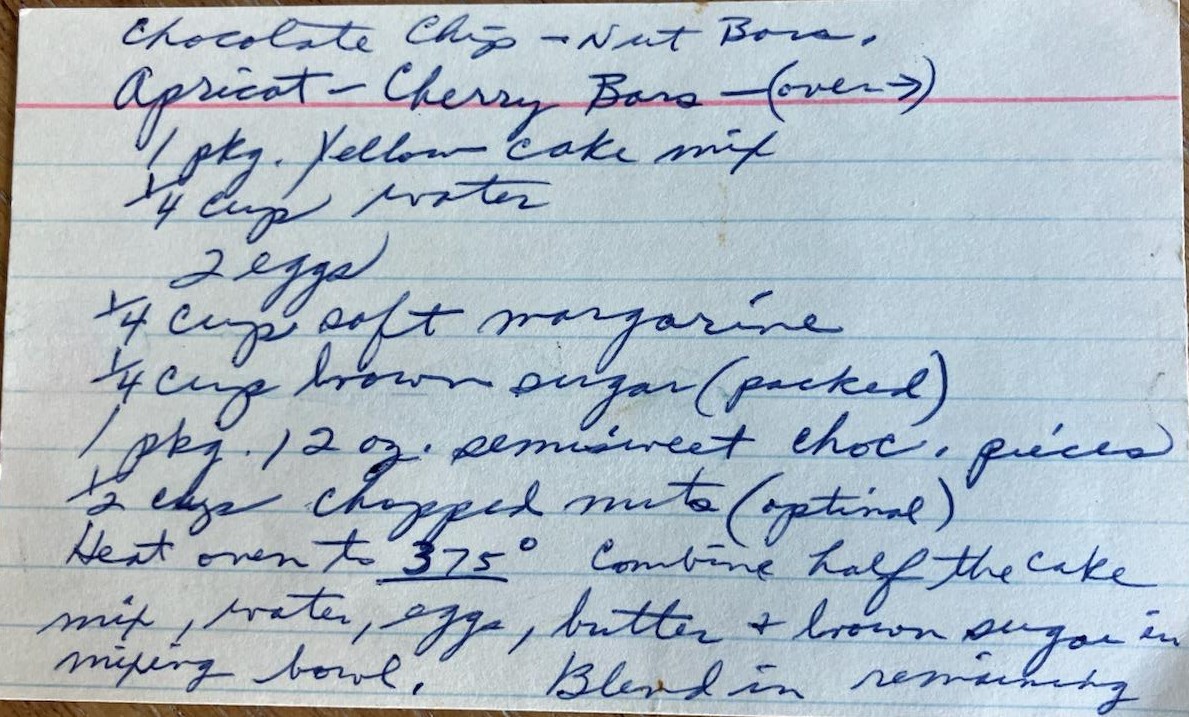 Chocolate Chip - Nut Bars.
Apricot - Cherry Bars - (over →)
1 pkg. Yellow cake mix
1/4 cup water
2 eggs
1/4 cup soft margarine
1/4 cup brown sugar (packed)
1 pkg. 12 oz. semisweet choc. pieces
1/2 cup chopped nuts (optinal)
Heat oven to 375° Combine half the cake
mix, water, eggs, butter & brown sugar in
mixing bowl. Blend in remaining